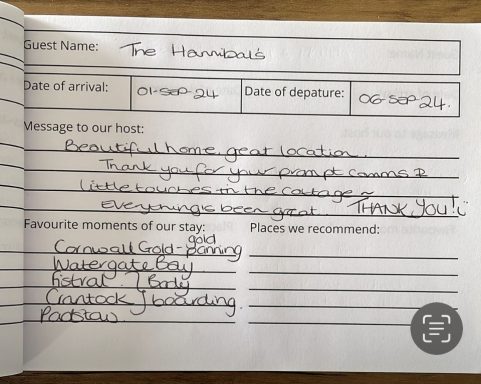 Guest Name: The Hannibal's
Date of arrival: 01-SEP-24 Date of depature: 06 SEP 24.
Message to our host:
Beautiful home, geat location.
Thank you for your prompt comms &
little touches in the cottage ~
Everything is been great THANK YOU!
Favourite moments of our stay: Places we recommend:
Cornwall Gold - gold panning
Watergate Bay
Fistral } Body
Crantock } boarding.
Padstow.